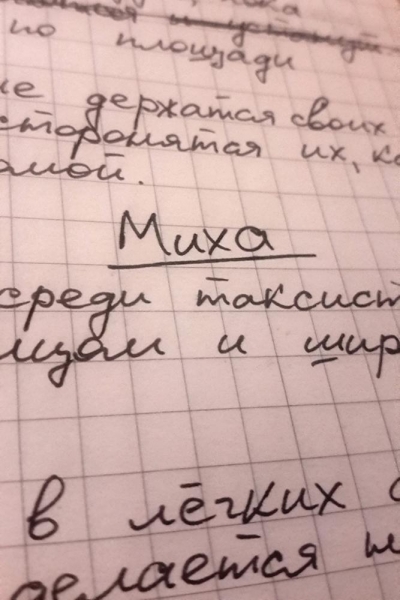 по площади
не держатся своих
сторонятся их,
Миха
среди таксист
и шир
в лёгких
делается